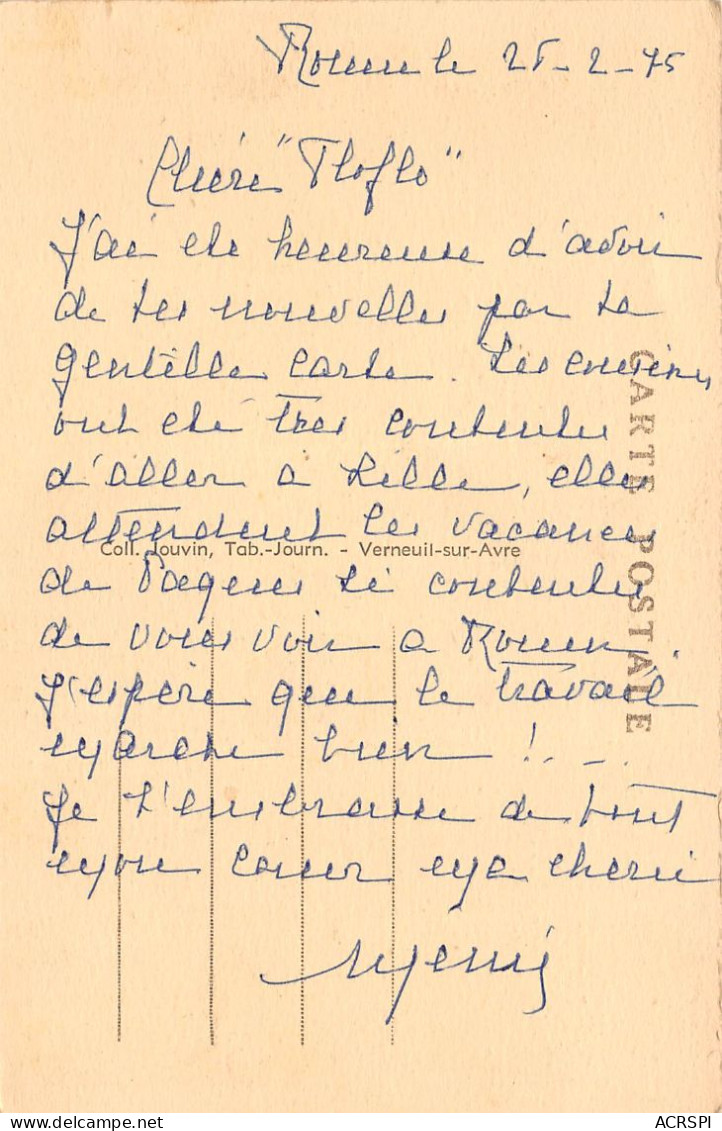 Rouen le 25-2-75
Chère "Floflo"
J'ai été heureuse d'avoir
de tes nouvelles par ta
gentille carte. Les cousines
ont été très contentes
d'aller à Lille, elles
attendent les vacances
Coll. Jouvin, Tab.-Journ. - Verneuil-sur-Avre
de Pâques si contentes
de vous voir à Rouen.
J'espère que le travail
marche bien !...
Je t'embrasse de tout
mon cœur ma chérie
CARTE POSTALE
ACRSPI